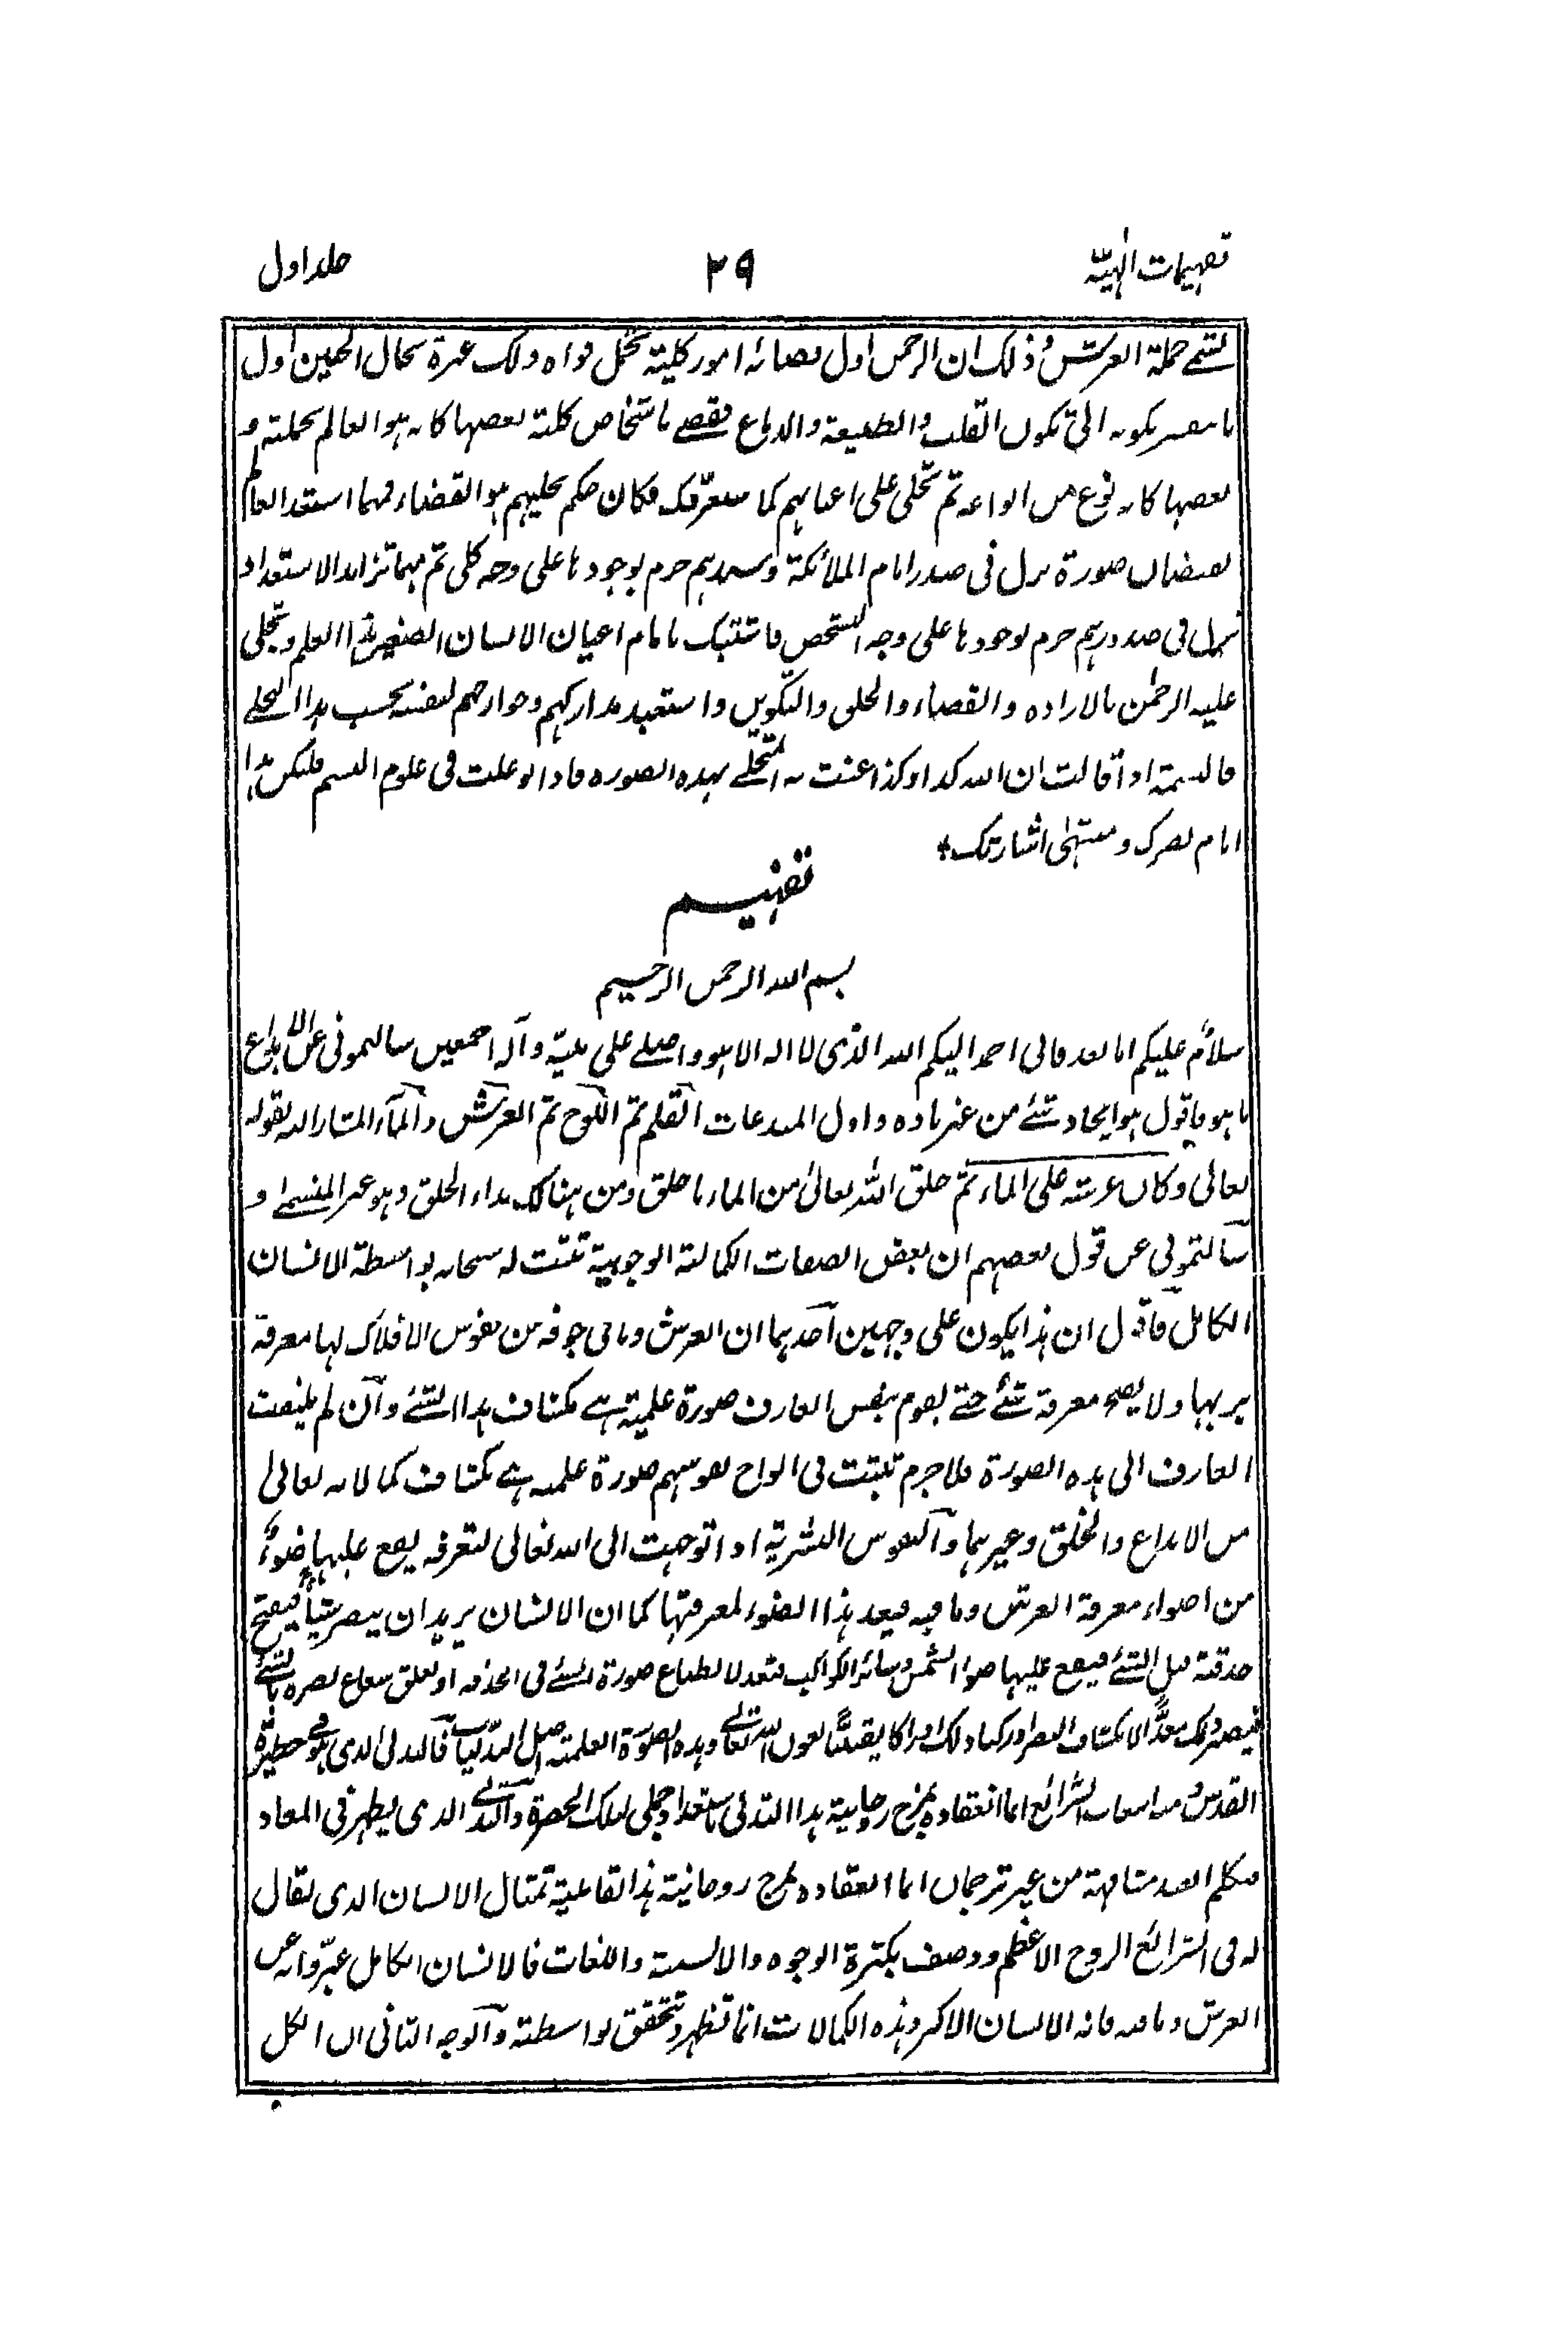 تفهيمات الٰهيّه ٢٩ جلد اول
لشئ حملة العرش وذلك ان الرحمن اول قضائه امور كلية تحمل قواه ولك عبرة بحال الجنين اول
ما يتكونه الى تكون القلب والطبيعة والدماغ فقضى باشخاص كلية بعضها كانه هو العالم بجملته و
بعضها كانه نوع من انواعه ثم تجلى على اعيانهم كما سنعرّفك فكان حكم تجليهم هو القضاء فمهما استعد العالم
لفيضان صورة نزل فى صدر امام الملائكة وسيدهم جزم بوجودها على وجه كلى ثم مهما تزايد الاستعداد
نزل فى صدورهم جزم بوجودها على وجه التشخص فاشتبك بامام اعيان الانسان الصغير هذا العلم وتجلى
عليه الرحمٰن بالاراده والقضاء والخلق والتكوين واستعبد مداركهم وجوارحهم لنفسه بحسب هذا التجلى
فالنسمة اذا قالت ان الله كذا وكذا عنت به المتجلى بهذه الصوره فاذا توغلت فى علوم النسم فليكن هذا
امام بصرك ومنتهىٰ اشارتك *
تفهيم
بسم الله الرحمن الرحيم
سلامٌ عليكم اما بعد فانى احمد اليكم الله الذى لا اله الا هو واصلى على نبيّه وآله اجمعين سالتمونى عن الابداع
ما هو فاقول هو ايجاد شئ من غير ماده واول المبدعات القلم ثم اللوح ثم العرش والمآء المشار اليه بقوله
تعالى وكان عرشه على الماء ثم خلق الله تعالىٰ من الماء ما خلق ومن هنالك بداء الخلق وهو غير و
سالتمونى عن قول بعضهم ان بعض الصفات الكمالية الوجوبية تثبت له سبحانه بواسطة الانسان
الكامل فاقول ان هذا يكون على وجهين احدهما ان العرش وما فى جوفه من نفوس الافلاك لها معرفة
بربها ولا يصح معرفة شئ حتى يقوم بنفس العارف صورة علمية هى مكشاف هذا الشئ وان لم يلتفت
العارف الى هذه الصورة فلا جرم تثبت فى الواح نفوسهم صورة علميه هى مكشاف كمالاته تعالى
من الابداع والخلق وغيرهما والنفوس البشرية اذا توجهت الى الله تعالى لتعرفه يقع عليها ضوءٌ
من اضواء معرفة العرش وما فيه فيعد هذا الضوء لمعرفتها كما ان الانسان يريد ان يبصر شيئا فيفتح
حدقته قبل الشئ فيقع عليها ضوء الشمس وسائر الكواكب فتعد لانطباع صورة الشئ فى الحدقه او تعلق شعاع بصره بالشئ
فيصير ذلك معدًّا لانكشاف البصر ادراكا يقينيًّا بعون الله تعالى وهذه الصورة العلمية اصل التدليات فالتدلى الذى هو فى حظيرة
القدس ومنه انبعاث الشرائع انما انعقاده بمزج روحانية هذا التدلى باستعداد جبلى لتلك الحضرة والتدلى الذى يظهر فى المعاد
فيكلم العبد مشافهة من غير ترجمان انما انعقاده بمزج روحانية هذا بقابلية تمثال الانسان الذى يقال
له فى الشرائع الروح الاعظم ووصف بكثرة الوجوه والالسنة واللغات فالانسان الكامل عبّروا به عن
العرش وما فيه فانه الانسان الاكبر وهذه الكمالات انما تظهر وتتحقق بواسطته والوجه الثانى ان الكل